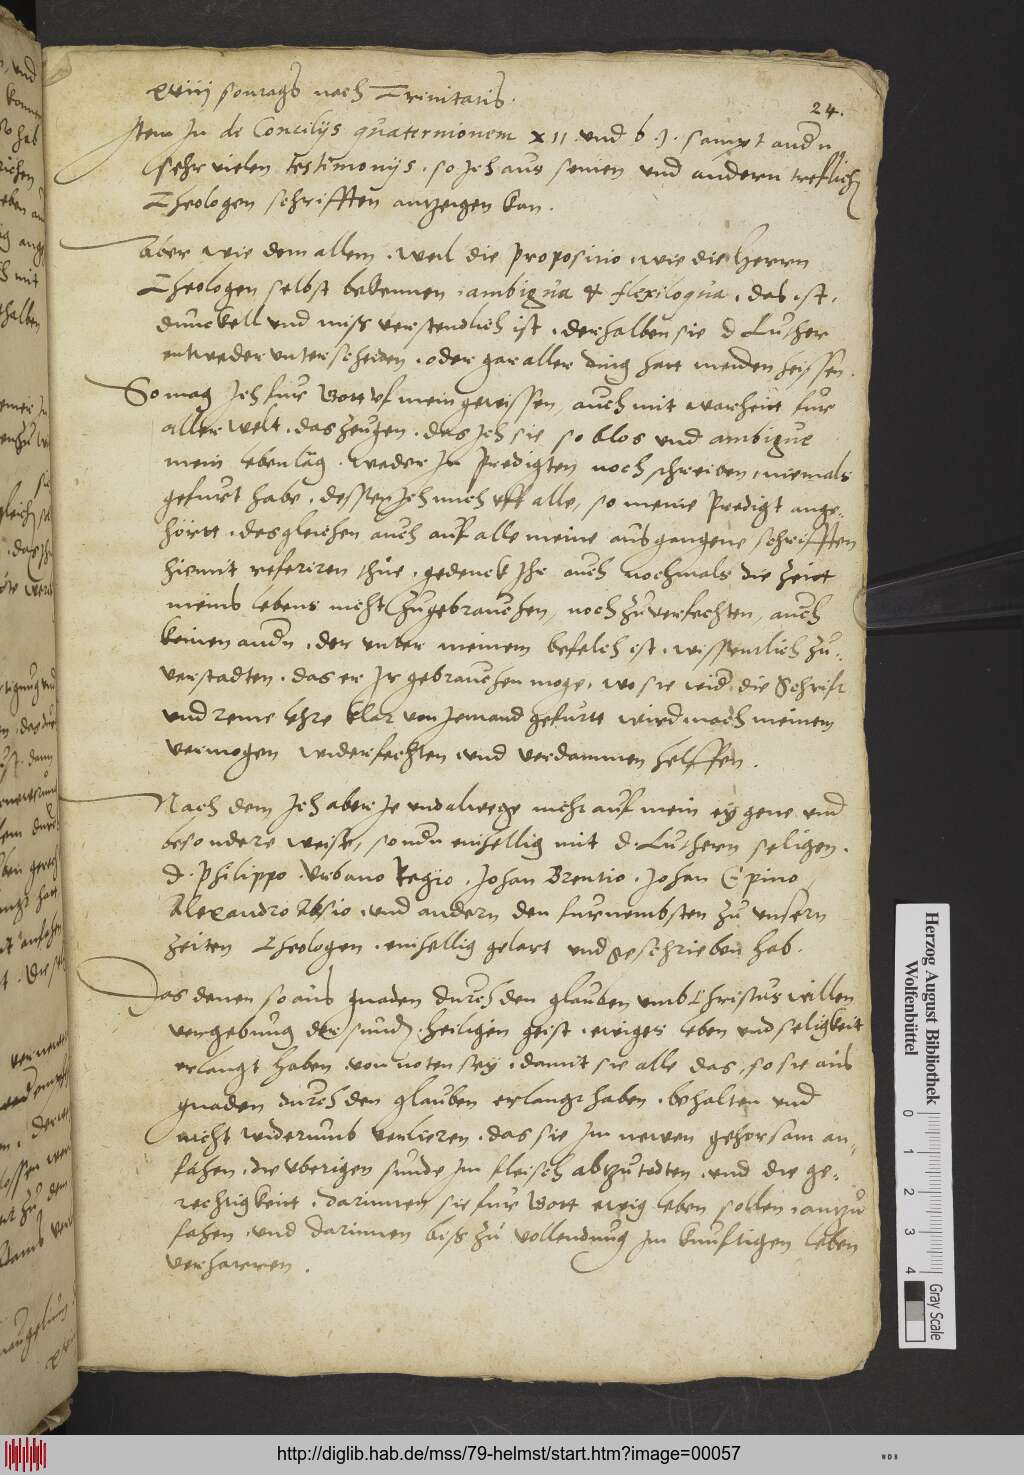 xviij sontags nach Trinitatis.
24.
Item In de Concilijs quaternionem x ij. und b. j. sampt andn
sehr vielen testimonijs. so Ich aus seinen und andern trefflich
Theologen schrifften antzeigen kan.
Aber wie dem allem. weil die proposino. wie die Herrn
Theologen selbst bekennen. ambigua & flexiloqua. das ist,
dunckell und miss verstendlich ist. derhalben sie d Luther
entweder unterscheiden. oder gar aller ding hatt meiden heissen.
So mag Ich fur Gott uf mein gewissen, auch mit warheit fur
aller welt. das zeugen. das Ich sie so blos und ambigue
mein lebenlag. weder In predigten noch schreiben, niemals
gefurt habe. dessen Ich mich uff alle, so meine predigt ange-
hortt. desgleichen auch auf alle meine ausgangene schrifften
hiemit referiren thue. gedenck Ihr auch nochmals die zeitt
meins lebens nicht zugebrauchen, noch zuverfechten, auch
keinen andn. der unter meinem befelch ist. wissentlich zu-
verstadten. das er Ir gebrauchen moge. wo sie wid die Schrift
und reine lehre klar von Jemand gefurtt wird nach meinem
vermogen widerfechten und verdammen helffen.
Nach dem Ich aber Je und alwege nicht auf mein eygene und
besondere weise, sondn einhellig mit d. Luthern seligen.
d. Philippo. Urbano Regio. Johan Brentio. Johan Epino
Alexandro Alesio. und andern den furnembsten zu unsern
zeiten Theologen. einhellig gelart und geschrieben hab.
Das denen so aus gnaden durch den glauben umb Christus willen
vergebung der sund. heiligen geist. ewiges leben und seligkeit
erlangt haben von noten sey. damit sie alle das, so sie aus
gnaden durch den glauben erlangt haben. behalten und
nicht widerumb verlieren. das sie Im newen gehorsam an-
fahen. die uberigen sunde Im fleisch abzutodten. und die ge-
rechtigkeit. darinnen sie fur Gott ewig leben sollen. antzu
fahen. und darinnen biss zu vollendung Im kunftigen leben
verharren.
Herzog August Bibliothek
Wolfenbüttel
0 1 2 3 4
Gray Scale
http://diglib.hab.de/mss/79-helmst/start.htm?image=00057